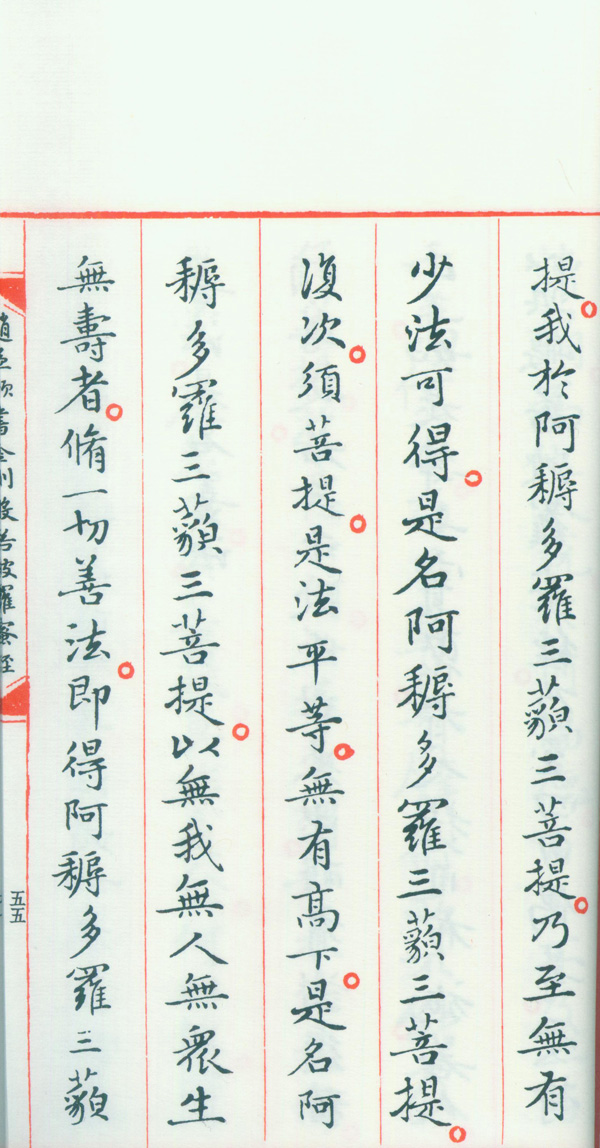 提。我於阿耨多羅三藐三菩提。乃至無有
少法可得。是名阿耨多羅三藐三菩提。
復次。須菩提。是法平等。無有高下。是名阿
耨多羅三藐三菩提。以無我無人無眾生
無壽者。脩一切善法。即得阿耨多羅三藐
趙孟頫書金剛般若波羅蜜經
五五